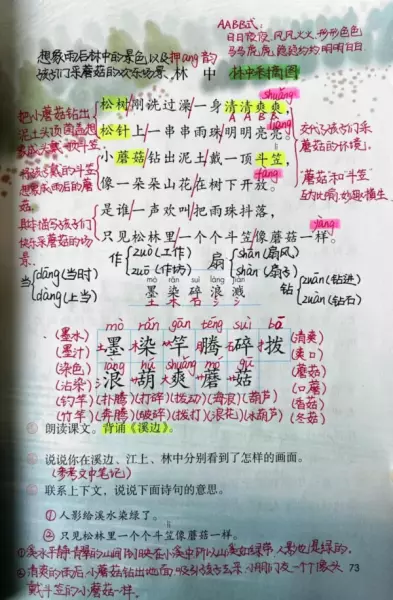 AABB式：
日日夜夜、风风火火、形形色色
马马虎虎、隐隐约约、明明白白
想象雨后林中的景色，以及押ang韵
孩子们采蘑菇的欢乐场景。
林 中
林中采蘑图
shuǎng
松树刚洗过澡一身清清爽爽。
A A B B
liàng
松针上一串串雨珠明明亮亮。
小蘑菇钻出泥土戴一顶斗笠，
fàng
像一朵朵山花在树下开放。
是谁一声欢叫把雨珠抖落，
yàng
只见松林里一个个斗笠像蘑菇一样。
把小蘑菇钻出
泥土头顶菌盖想
象成头戴
将孩子戴的斗笠
想象成雨后的蘑
菇。
具体描写孩子们
快乐采蘑菇的场
景。
交代了孩子们采
蘑菇的环境。
蘑菇和斗笠
互为比喻，妙趣横生
当 dāng(当时)
dàng(上当)
作 zuò(工作)
zuō(作坊)
扇 shān(扇风)
shàn(扇子)
钻 zuān(钻进)
zuàn(钻石)
mò rǎn suì làng jiàn
墨 染 碎 浪 溅
mò rǎn gān téng suì bō
墨 染 竿 腾 碎 拨
làng hú shuǎng mó gū
浪 葫 爽 蘑 菇
(墨水)
(墨汁)
(染色)
(沾染)
(清爽)
(爽口)
(蘑菇)
(口蘑)
(钓竿)(扑腾)(打碎)(拨动)(海浪)(葫芦)(香菇)
(竹竿)(奔腾)(破碎)(拨打)(浪花)(冰葫芦)(冬菇)
朗读课文。背诵《溪边》。
说说你在溪边、江上、林中分别看到了怎样的画面。
(参考文中笔记)
联系上下文，说说下面诗句的意思。
①人影给溪水染绿了。
②只见松林里一个个斗笠像蘑菇一样。
73